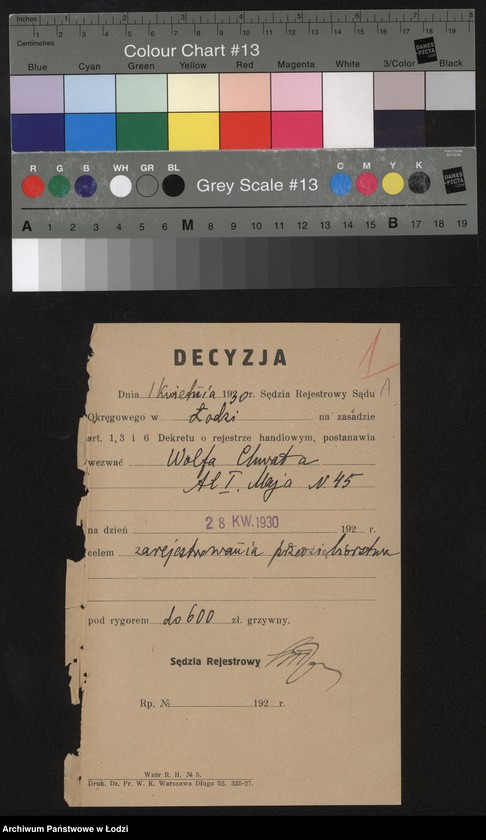 Inches 1 2 3 4 5 6 7 8
Centimetres 1 2 3 4 5 6 7 8 9 10 11 12 13 14 15 16 17 18 19
Colour Chart #13
DANES PICTA
Blue Cyan Green Yellow Red Magenta White 3/Color Black
R G B WH GR BL Grey Scale #13 C M Y K
DANES PICTA
A 1 2 3 4 5 6 M 8 9 10 11 12 13 14 15 B 17 18 19
1
DECYZJA
Dnia 1 kwietnia 1930 r. Sędzia Rejestrowy Sądu
Okręgowego w Łodzi na zasadzie
art. 1, 3 i 6 Dekretu o rejestrze handlowym, postanawia
wezwać Wolfa Chwata
Al I. Maja N. 45
na dzień 28 KW. 1930 192 r.
celem zarejestrowania przedsiębiorstwa
pod rygorem do 600 zł. grzywny.
Sędzia Rejestrowy
Rp. № 192 r.
Wzór R. H. № 5.
Druk. Dz. Pr. W. K. Warszawa Długa 52. 325-27.
Archiwum Państwowe w Łodzi